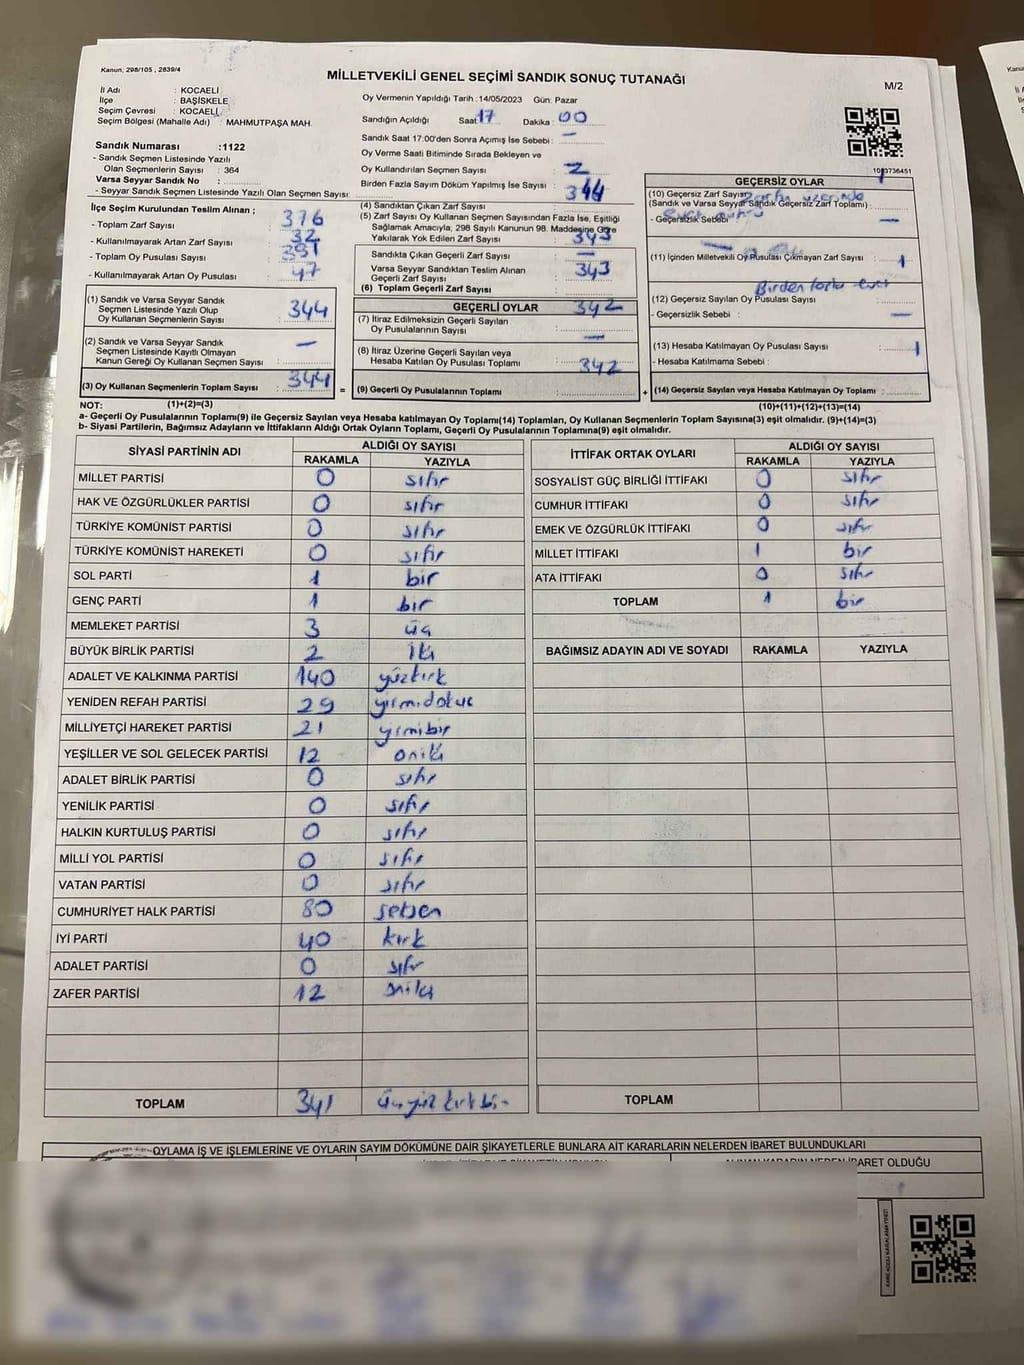 Kanun; 298/105 , 2839/4
MİLLETVEKİLİ GENEL SEÇİMİ SANDIK SONUÇ TUTANAĞI
M/2
İl Adı : KOCAELİ
İlçe : BAŞİSKELE
Seçim Çevresi : KOCAELİ
Seçim Bölgesi (Mahalle Adı) : MAHMUTPAŞA MAH.
Sandık Numarası :1122
- Sandık Seçmen Listesinde Yazılı
Olan Seçmenlerin Sayısı : 364
Varsa Seyyar Sandık No :
- Seyyar Sandık Seçmen Listesinde Yazılı Olan Seçmen Sayısı:
İlçe Seçim Kurulundan Teslim Alınan ;
- Toplam Zarf Sayısı : 376
- Kullanılmayarak Artan Zarf Sayısı : 32
- Toplam Oy Pusulası Sayısı : 391
- Kullanılmayarak Artan Oy Pusulası : 47
(1) Sandık ve Varsa Seyyar Sandık
Seçmen Listesinde Yazılı Olup
Oy Kullanan Seçmenlerin Sayısı : 344
(2) Sandık ve Varsa Seyyar Sandık
Seçmen Listesinde Kayıtlı Olmayan
Kanun Gereği Oy Kullanan Seçmen Sayısı : —
(3) Oy Kullanan Seçmenlerin Toplam Sayısı : 344 =
Oy Vermenin Yapıldığı Tarih :14/05/2023 Gün: Pazar
Sandığın Açıldığı Saat 17 Dakika : 00
Sandık Saat 17:00'den Sonra Açımış İse Sebebi : —
Oy Verme Saati Bitiminde Sırada Bekleyen ve
Oy Kullandırılan Seçmen Sayısı : 2
Birden Fazla Sayım Döküm Yapılmış İse Sayısı :
344
(4) Sandıktan Çıkan Zarf Sayısı :
(5) Zarf Sayısı Oy Kullanan Seçmen Sayısından Fazla İse, Eşitliği
Sağlamak Amacıyla; 298 Sayılı Kanunun 98. Maddesine Göre
Yakılarak Yok Edilen Zarf Sayısı :
343
Sandıkta Çıkan Geçerli Zarf Sayısı : —
Varsa Seyyar Sandıktan Teslim Alınan
Geçerli Zarf Sayısı : 343
(6) Toplam Geçerli Zarf Sayısı :
GEÇERLİ OYLAR
342
(7) İtiraz Edilmeksizin Geçerli Sayılan
Oy Pusulalarının Sayısı : —
(8) İtiraz Üzerine Geçerli Sayılan veya
Hesaba Katılan Oy Pusulası Toplamı : 342
(9) Geçerli Oy Pusulalarının Toplamı : +
1013736451
GEÇERSİZ OYLAR
1
(10) Geçersiz Zarf Sayısı
(Sandık ve Varsa Seyyar Sandık Geçersiz Zarf Toplamı) :
- Geçersizlik Sebebi
üzerinde
(11) İçinden Milletvekili Oy Pusulası Çıkmayan Zarf Sayısı : 1
Birden fazla evet
(12) Geçersiz Sayılan Oy Pusulası Sayısı :
- Geçersizlik Sebebi :
(13) Hesaba Katılmayan Oy Pusulası Sayısı : 1
- Hesaba Katılmama Sebebi :
(14) Geçersiz Sayılan veya Hesaba Katılmayan Oy Toplamı :
NOT: (1)+(2)=(3) (10)+(11)+(12)+(13)=(14)
a- Geçerli Oy Pusulalarının Toplamı(9) ile Geçersiz Sayılan veya Hesaba katılmayan Oy Toplamı(14) Toplamları, Oy Kullanan Seçmenlerin Toplam Sayısına(3) eşit olmalıdır. (9)+(14)=(3)
b- Siyasi Partilerin, Bağımsız Adayların ve İttifakların Aldığı Ortak Oyların Toplamı, Geçerli Oy Pusulalarının Toplamına(9) eşit olmalıdır.
SİYASİ PARTİNİN ADI ALDIĞI OY SAYISI
RAKAMLA YAZIYLA
MİLLET PARTİSİ 0 sıfır
HAK VE ÖZGÜRLÜKLER PARTİSİ 0 sıfır
TÜRKİYE KOMÜNİST PARTİSİ 0 sıfır
TÜRKİYE KOMÜNİST HAREKETİ 0 sıfır
SOL PARTİ 1 bir
GENÇ PARTİ 1 bir
MEMLEKET PARTİSİ 3 üç
BÜYÜK BİRLİK PARTİSİ 2 iki
ADALET VE KALKINMA PARTİSİ 140 yüzkırk
YENİDEN REFAH PARTİSİ 29 yirmidokuz
MİLLİYETÇİ HAREKET PARTİSİ 21 yirmibir
YEŞİLLER VE SOL GELECEK PARTİSİ 12 oniki
ADALET BİRLİK PARTİSİ 0 sıfır
YENİLİK PARTİSİ 0 sıfır
HALKIN KURTULUŞ PARTİSİ 0 sıfır
MİLLİ YOL PARTİSİ 0 sıfır
VATAN PARTİSİ 0 sıfır
CUMHURİYET HALK PARTİSİ 80 seksen
İYİ PARTİ 40 kırk
ADALET PARTİSİ 0 sıfır
ZAFER PARTİSİ 12 oniki
TOPLAM 341 üçyüz kırk bir
İTTİFAK ORTAK OYLARI ALDIĞI OY SAYISI
RAKAMLA YAZIYLA
SOSYALİST GÜÇ BİRLİĞİ İTTİFAKI 0 sıfır
CUMHUR İTTİFAKI 0 sıfır
EMEK VE ÖZGÜRLÜK İTTİFAKI 0 sıfır
MİLLET İTTİFAKI 1 bir
ATA İTTİFAKI 0 sıfır
TOPLAM 1 bir
BAĞIMSIZ ADAYIN ADI VE SOYADI RAKAMLA YAZIYLA
TOPLAM
OYLAMA İŞ VE İŞLEMLERİNE VE OYLARIN SAYIM DÖKÜMÜNE DAİR ŞİKAYETLERLE BUNLARA AİT KARARLARIN NELERDEN İBARET BULUNDUKLARI
ALINAN KARARIN NEDEN İBARET OLDUĞU